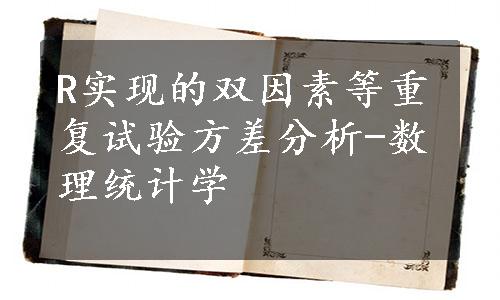 R实现的双因素等重
复试验方差分析-数
理统计学